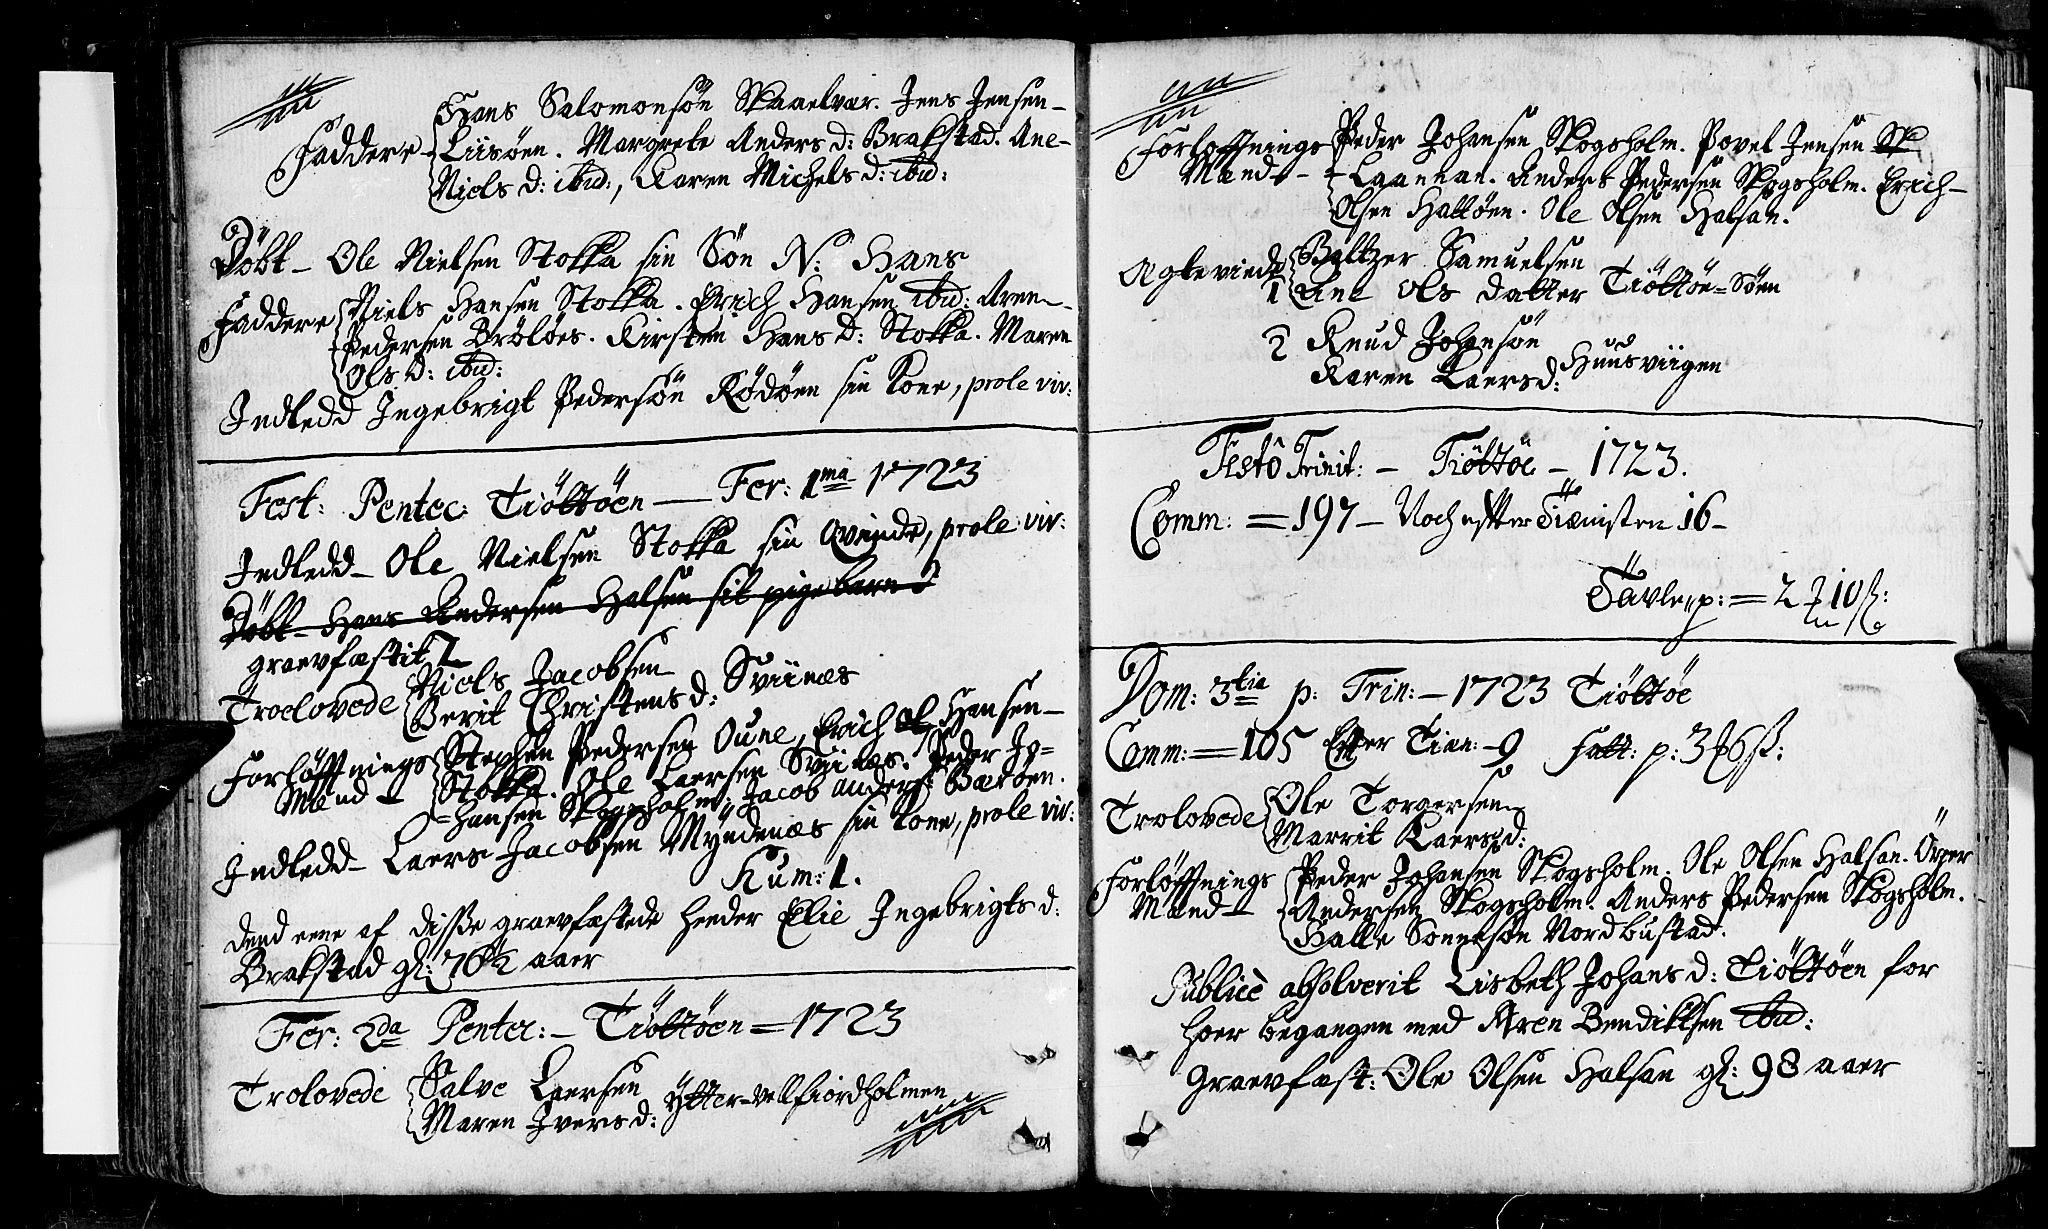 Hans Salomonsøn Skaalvær. Jens Jensen
Faddere Liisøen. Margrete Anders d: Brakstad. Ane
Niels d: ibid:, Karen Michels d: ibid:
Døbt - Ole Nielsen Stokka sin Søn N: Hans
Faddere Niels Hansen Stokka. Erich Hansen ibid: Aren
Pedersen Brøløes. Kirsten Hans D: Stokka. Maren
Ols D: ibid:
Indledd Ingebrigt Pedersøn Rødøen sin Kone, prole viv:
Fest: Pentec: Tiøttøen — Fer: 1ma 1723
Indledd - Ole Nielsen Stokka sin Qvinde, prole viv:
Døbt - Hans Andersen Halsen sit pigebarn
graevfæstit 2
Troelovede Niels Jacobsen
Berit Christens d: Sviinæs
Forløffnings Stephen Pedersen Oune, Erich Hansen
Mænd - Stokka. Ole Laersen Sviinæs. Peder Jo=
=hansen Skogsholm, Jacob Anders: Bærøen.
Indledd - Laers Jacobsen Myndenæs sin Kone, prole viv:
Hum: 1.
Dend eene af disse graevfæstede heeder Elie Ingebrigts d:
Brakstad gl: 76 1/2 aaer
Fer: 2da Pentec: - Tiøttøen = 1723
Trolovede Salve Laersen
Maren Ivers d: Ytter-Velfiordholmen
Forløffnings Peder Johansen Skogsholm. Povel Jensen Sk
Mænd - Laannan. Anders Pedersen Skogsholm. Erich
Olsen Hattøen. Ole Olsen Halsan.
Ægteviede Baltzer Samuelsen
1 Ane Ols Datter Tiøttøe-Søen
2 Knud Johansøn
Karen Laersd: Huusviigen
Festô Trinit: - Tiøttøe - 1723.
Comm: = 197 - Noch efter Tienisten 16 -
Tavle p: = 2 10 ß:
Dom: 3tia p: Trin: - 1723 Tiøttøe
Comm: = 105 Efter Tien: - 9 Fatt: p: 3 6 ß:
Trolovede Ole Torgersen
Marrit Laers d:
Forløffnings Peder Johansen Skogsholm. Ole Olsen Halsan.
Mænd - Andersen Skogsholm. Anders Pedersen Skogsholm.
Halle Sønnesøn Nordbustad.
Publicè absolverit Lisbeth Johans d: Tiøttøen for
hoer begangen med Aren Bendiktsen ibid:
Graevfæst: Ole Olsen Halsan gl: 98 aaer